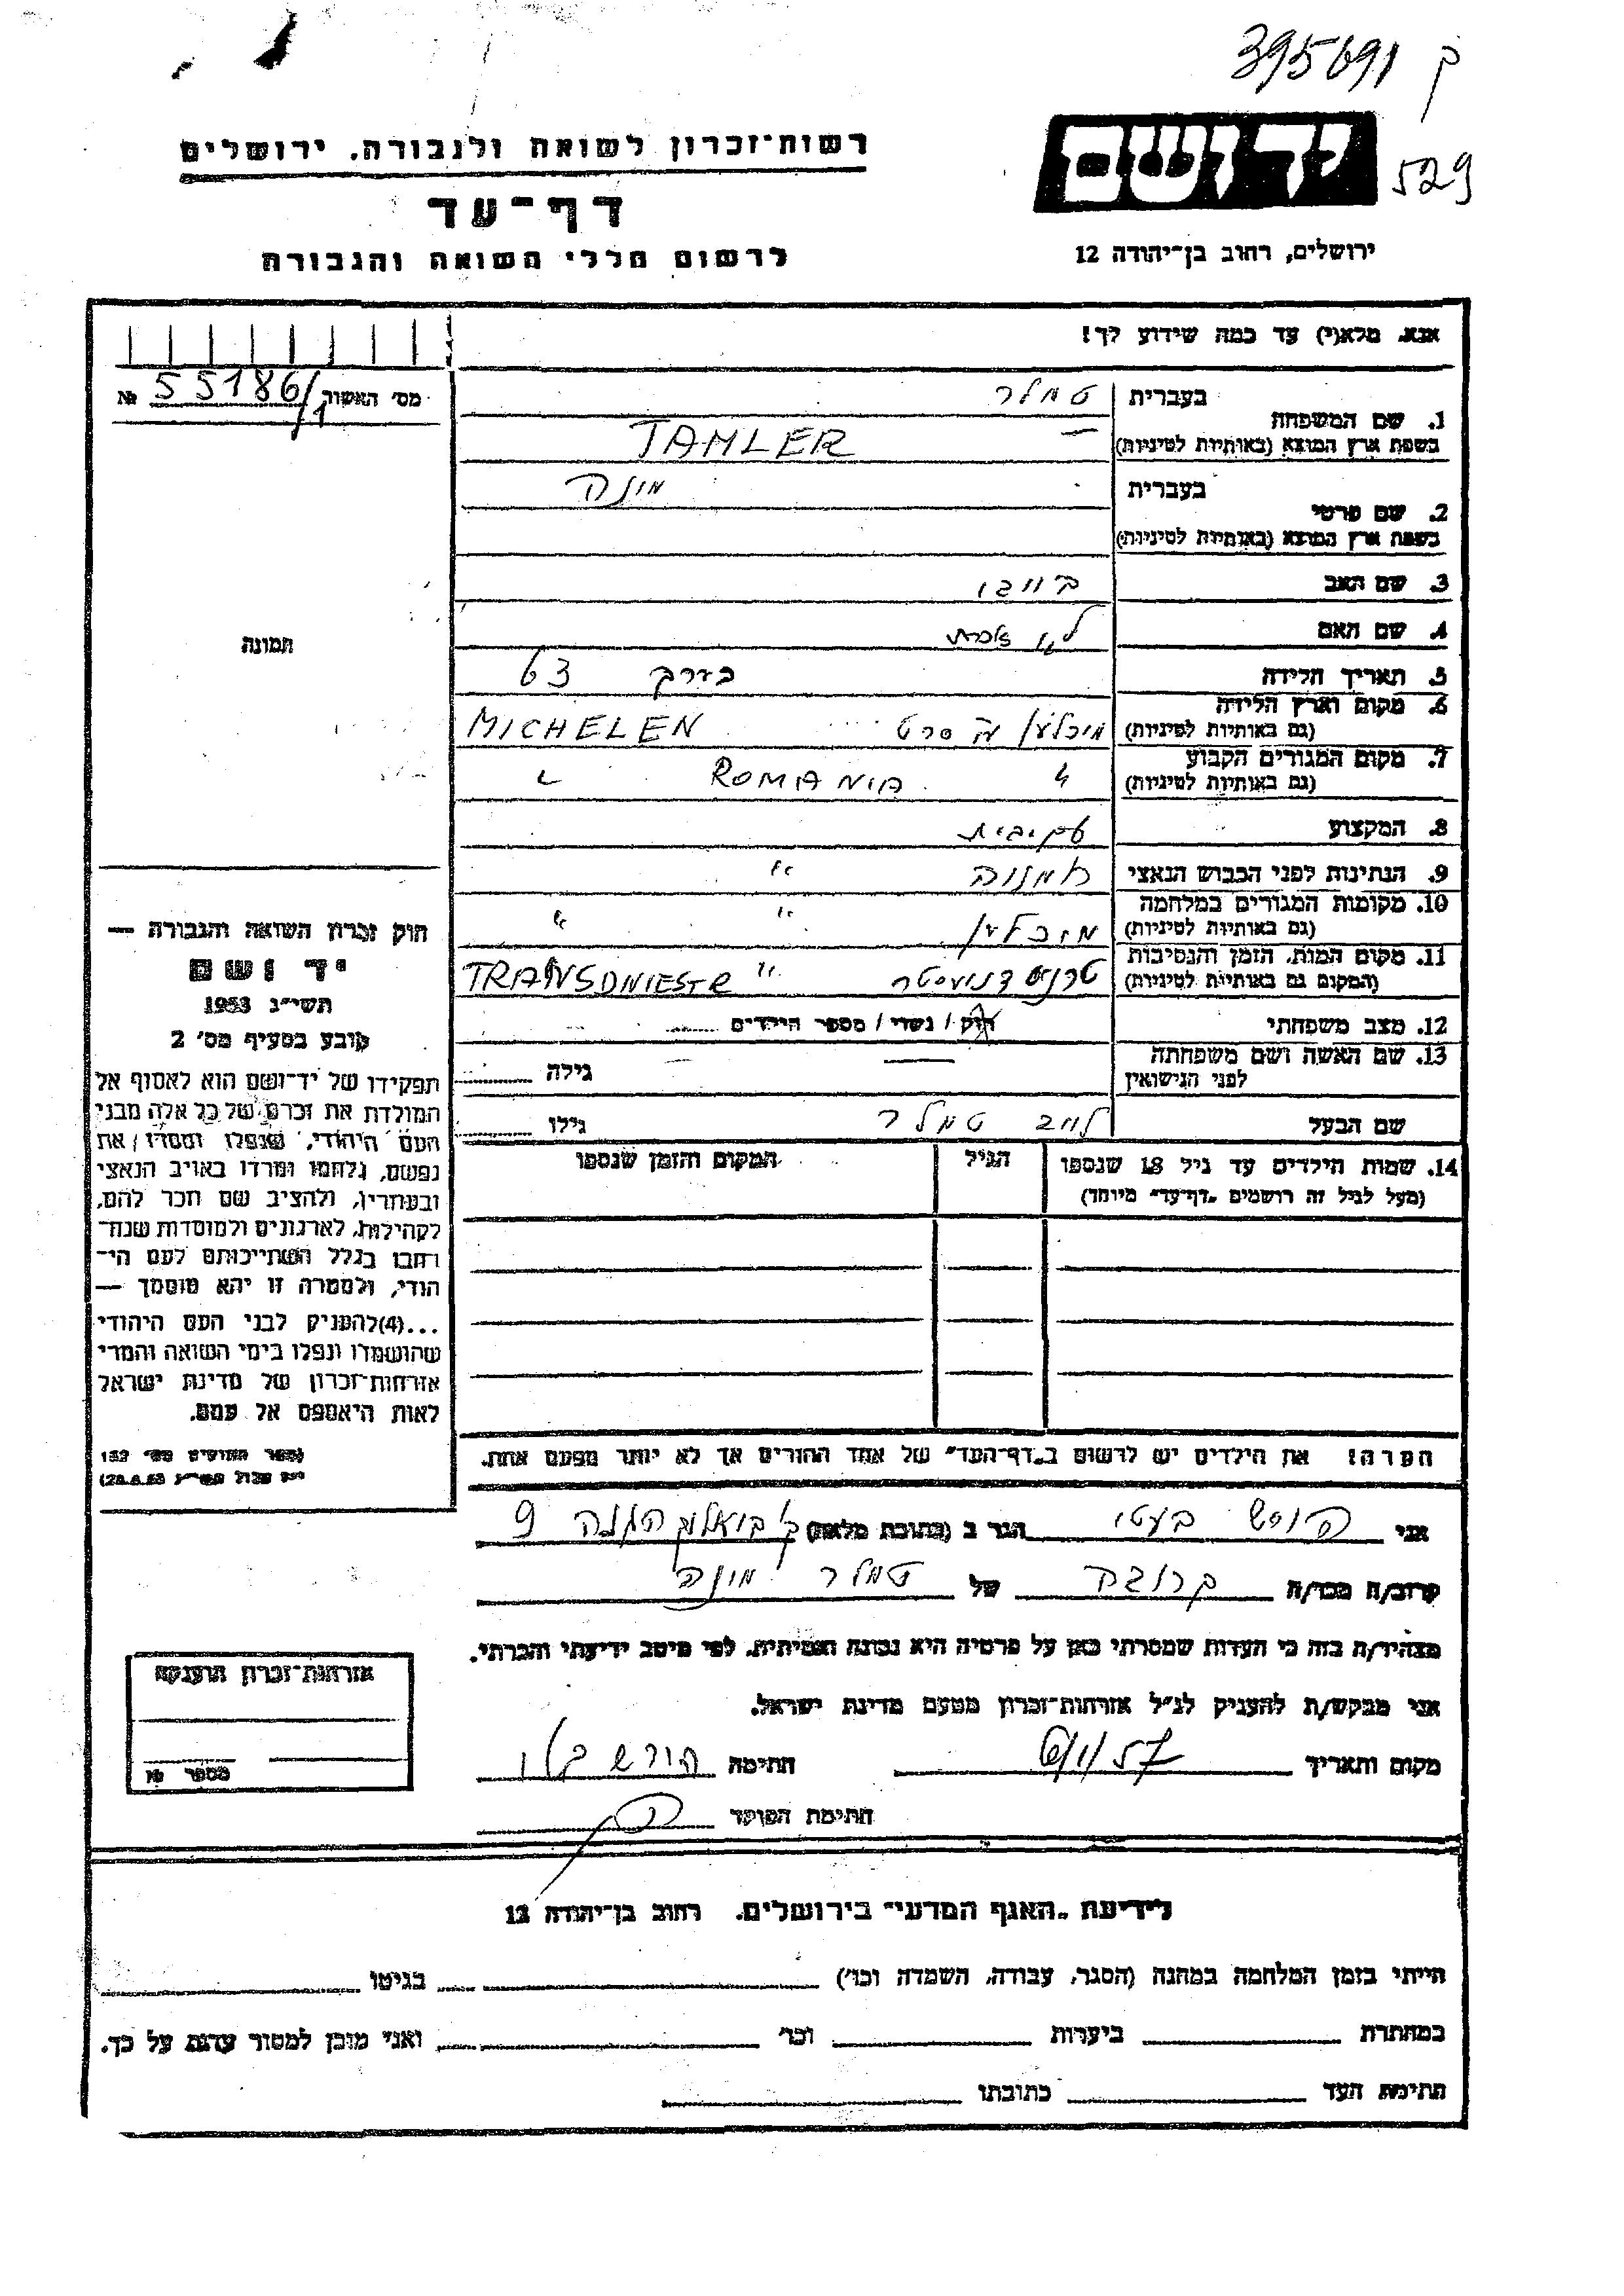 395691 ק
529
יד ושם
ירושלים, רחוב בן־יהודה 12
רשות־זכרון לשואה ולגבורה. ירושלים
דף־עד
לרשום חללי השואה והגבורה
אנא, מלא(י) עד כמה שידוע לך!
מס׳ האשור № 55186/1
1. שם המשפחה
בעברית טמלר
בשפת ארץ המוצא (באותיות לטיניות) TAMLER
2. שם פרטי
בעברית מונה
בשפת ארץ המוצא (באותיות לטיניות)
3. שם האב
4. שם האם
5. תאריך הלידה בערך 63
6. מקום וארץ הלידה
(גם באותיות לטיניות) MICHELEN
7. מקום המגורים הקבוע
(גם באותיות לטיניות) " ROMANIA "
8. המקצוע
9. הנתינות לפני הכבוש הנאצי "
10. מקומות המגורים במלחמה
(גם באותיות לטיניות) " "
11. מקום המות, הזמן והנסיבות
(המקום גם באותיות לטיניות) TRANSDNIESTR "
12. מצב משפחתי רווק / נשוי / מספר הילדים
13. שם האשה ושם משפחתה
לפני הנישואין — גילה
שם הבעל טמלר גילו
14. שמות הילדים עד גיל 18 שנספו
(מעל לגיל זה רושמים „דף־עד״ מיוחד)
הגיל
המקום והזמן שנספו
הערה! את הילדים יש לרשום ב„דף־העד״ של אחד ההורים אך לא יותר מפעם אחת.
תמונה
חוק זכרון השואה והגבורה —
יד ושם
תשי״ג 1953
קובע בסעיף מס׳ 2
תפקידו של יד־ושם הוא לאסוף אל
המולדת את זכרם של כל אלה מבני
העם היהודי, שנפלו ומסרו את
נפשם, נלחמו ומרדו באויב הנאצי
ובעוזריו, ולהציב שם וזכר להם,
לקהילות, לארגונים ולמוסדות שנח־
רבו בגלל השתייכותם לעם הי־
הודי, ולמטרה זו יהא מוסמך —
...(4)להעניק לבני העם היהודי
שהושמדו ונפלו בימי השואה והמרי
אזרחות־זכרון של מדינת ישראל
לאות היאספם אל עמם.
(ספר החוקים מס׳ 132
אני הגר ב (כתובת מלאה) 9
קרוב/ה מכר/ה קרובה של טמלר מונה
מצהיר/ה בזה כי העדות שמסרתי כאן על פרטיה היא נכונה ואמיתית, לפי מיטב ידיעתי והכרתי.
אני מבקש/ת להעניק לנ״ל אזרחות־זכרון מטעם מדינת ישראל.
מקום ותאריך חתימה
חתימת הפוקד
אזרחות־זכרון הוענקה
מספר №
לידיעת „האגף המדעי״ בירושלים. רחוב בן־יהודה 12
הייתי בזמן המלחמה במחנה (הסגר, עבודה, השמדה וכו׳) בגיטו
במחתרת ביערות וכו׳ ואני מוכן למסור עדות על כך.
חתימת העד כתובתו